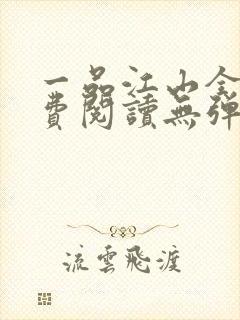 一品江山全
費閱讀無彈
流雲飛渡